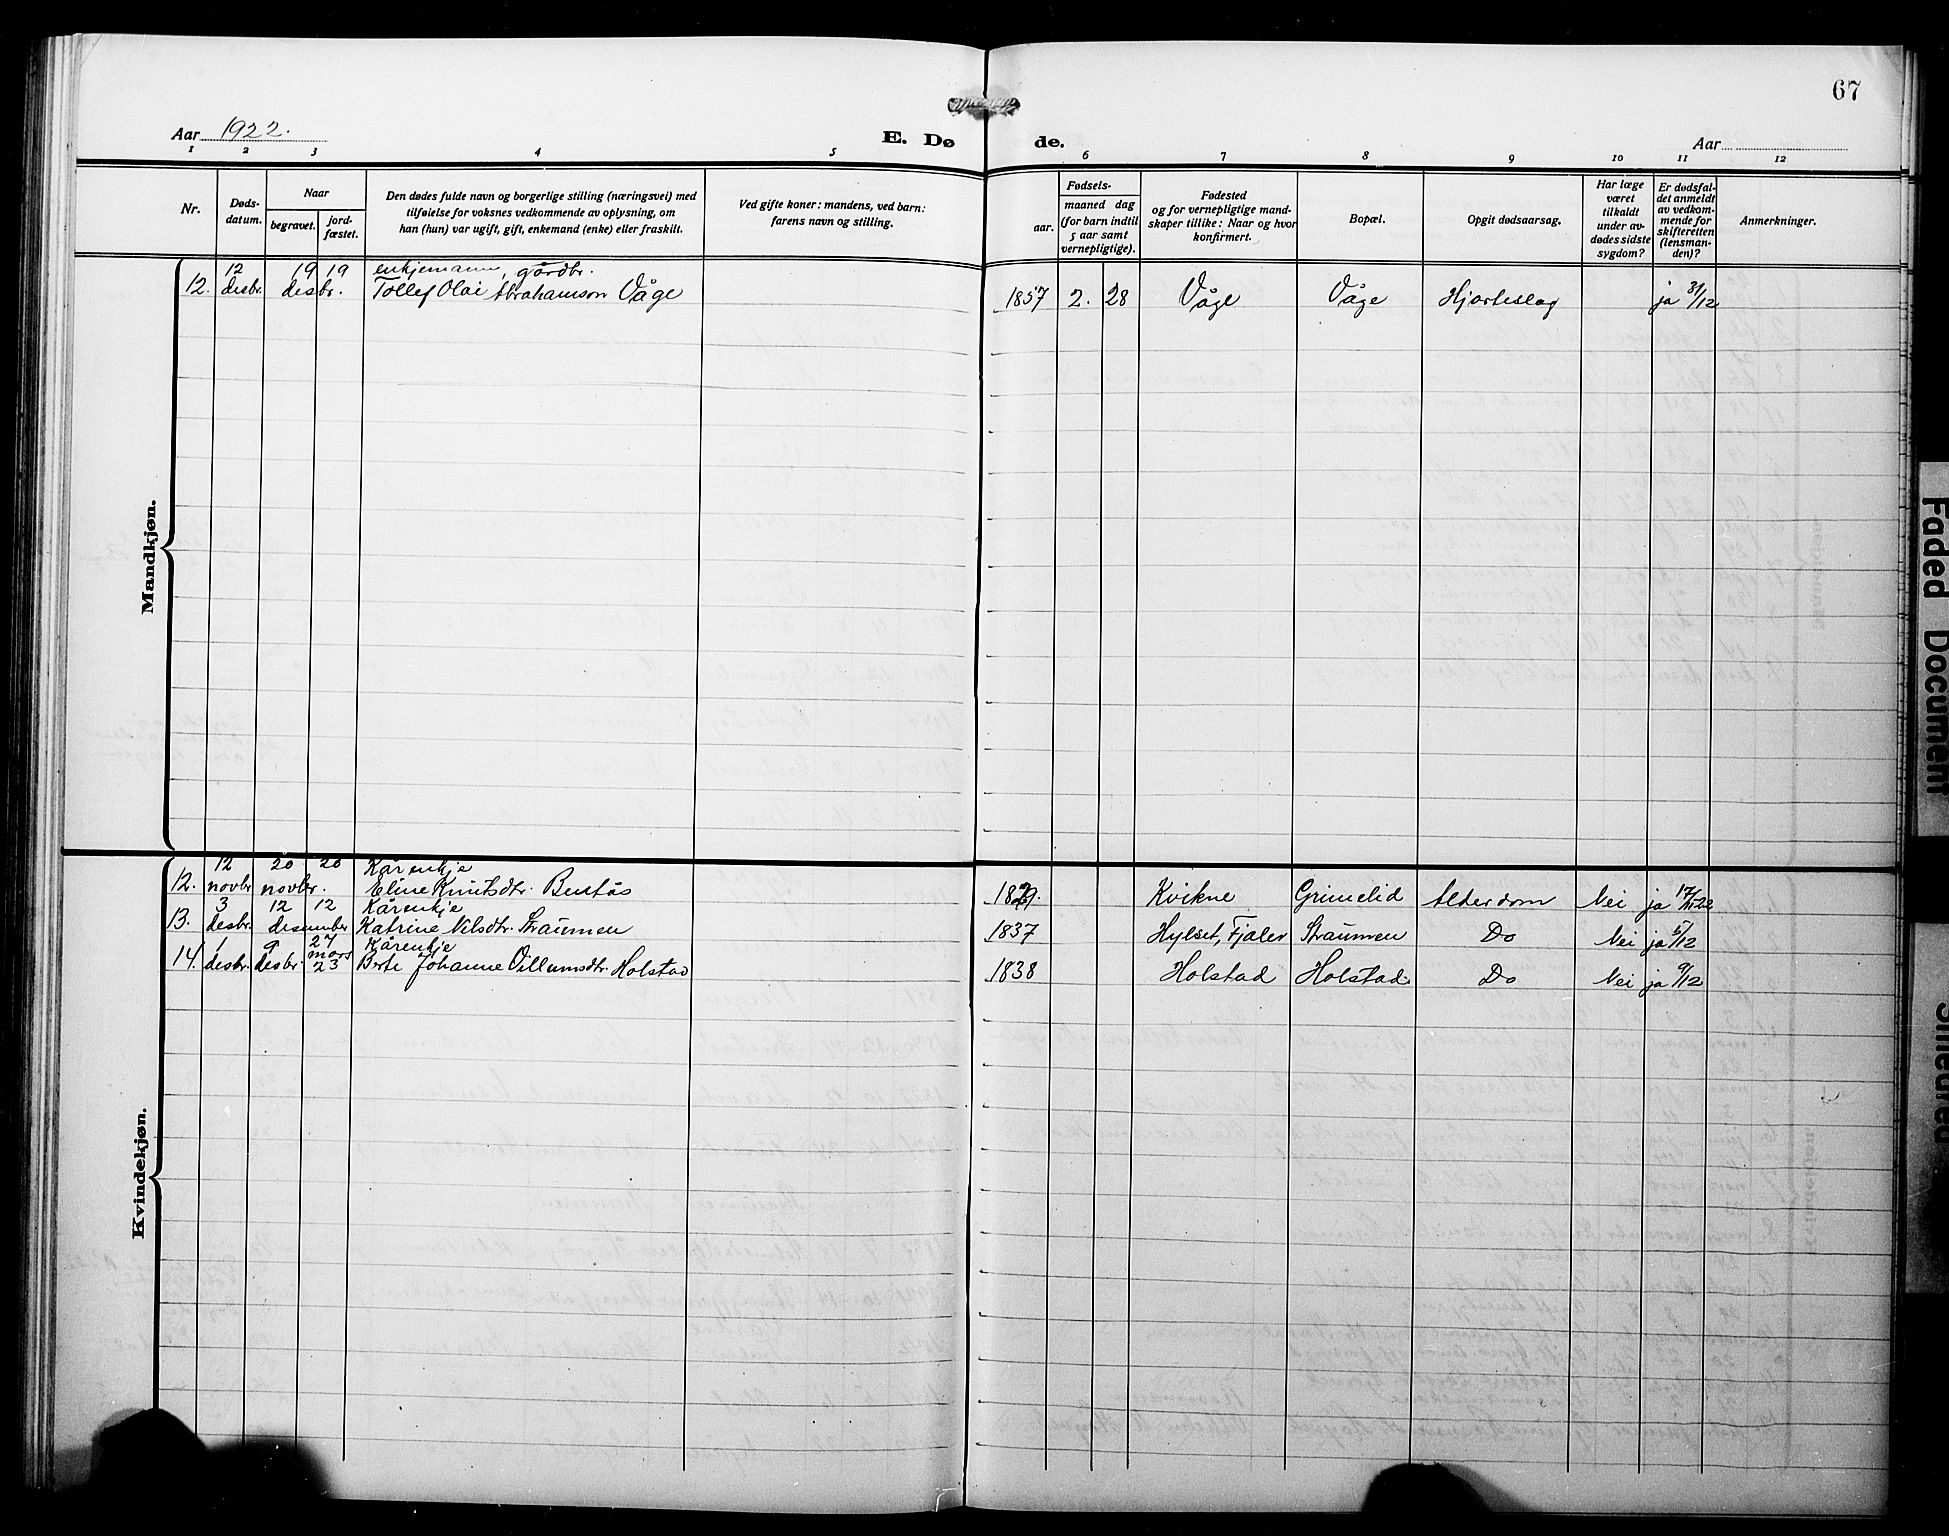 67
Aar 1922.
E. Dø de.
Aar
1 2 3 4 5 6 7 8 9 10 11 12
Nr.
Døds-
datum.
Naar
begravet.
jord-
fæstet.
Den dødes fulde navn og borgerlige stilling (næringsvei) med
tilføielse for voksnes vedkommende av oplysning, om
han (hun) var ugift, gift, enkemand (enke) eller fraskilt.
Ved gifte koner: mandens, ved barn:
farens navn og stilling.
Fødsels-
aar.
maaned dag
(for barn indtil
5 aar samt
vernepligtige).
Fødested
og for vernepligtige mand-
skaper tillike: Naar og hvor
konfirmert.
Bopæl.
Opgit dødsaarsag.
Har læge
været
tilkaldt
under av-
dødes sidste
sygdom?
Er dødsfal-
det anmeldt
av vedkom-
mende for
skifteretten
(lensman-
den)?
Anmerkninger.
Mandkjøn.
12 19 19 enkjemann, gårdbr.
12. desbr. desbr. Tollef Olai Abrahamson Våge 1857 2. 28 Våge Våge Hjarteslag ja 31/12
Kvindekjøn.
12 20 20 Kårenkje
12. novbr. novbr. Eline Knutsdtr. 1829. Kvikne Grimelid Alderdom Nei ja
3 12 12 Kårenkje
13. desbr. desember Katrine Nilsdtr. Straumen 1837 Hylset, Fjaler Straumen Do Nei ja 5/12
1 9 27 Kårenkje
mars
14. desbr. desbr. 23 Berte Johanne Villumsdtr. Holstad 1838 Holstad Holstad Do Nei ja 9/12
Faded Document
Smeared